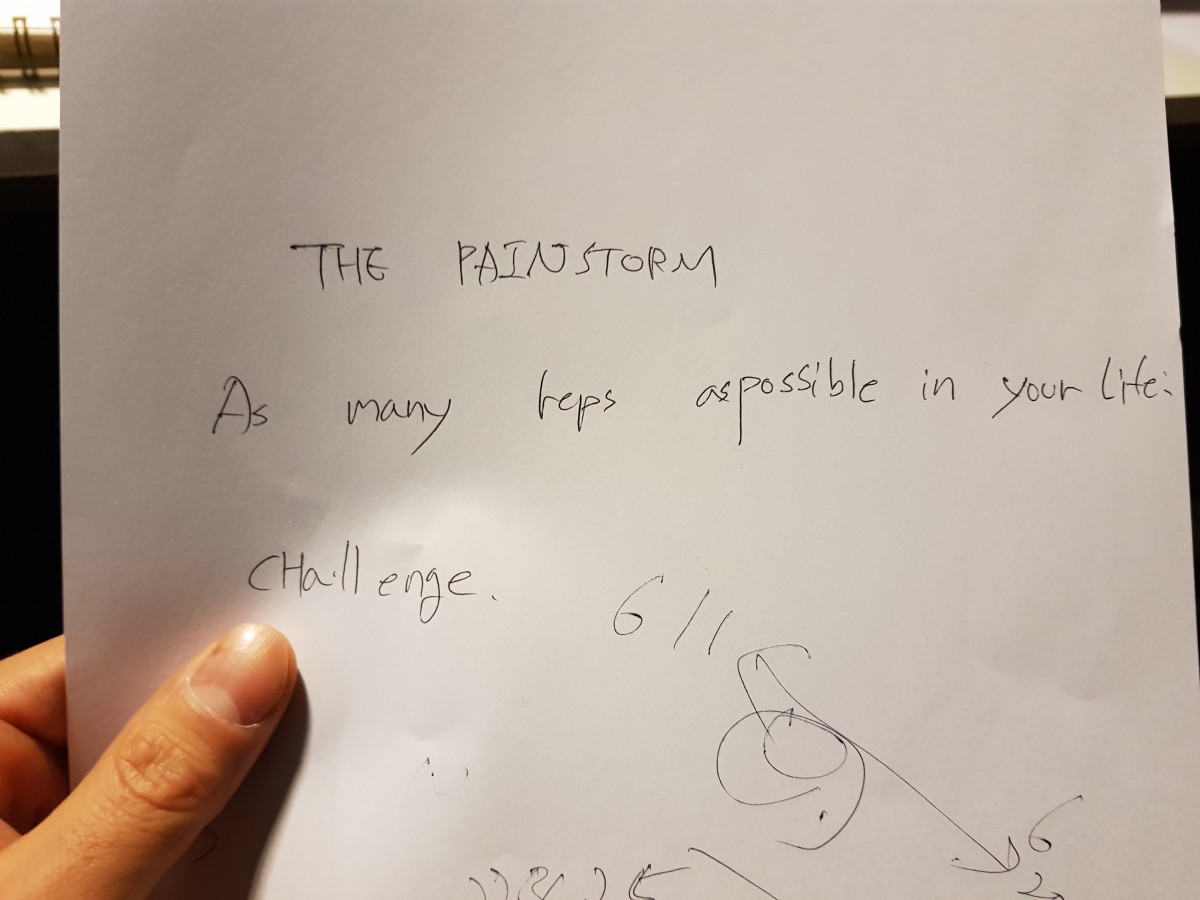 THE PAINSTORM
As many reps aspossible in your life:
CHallenge.
6/1
6
2